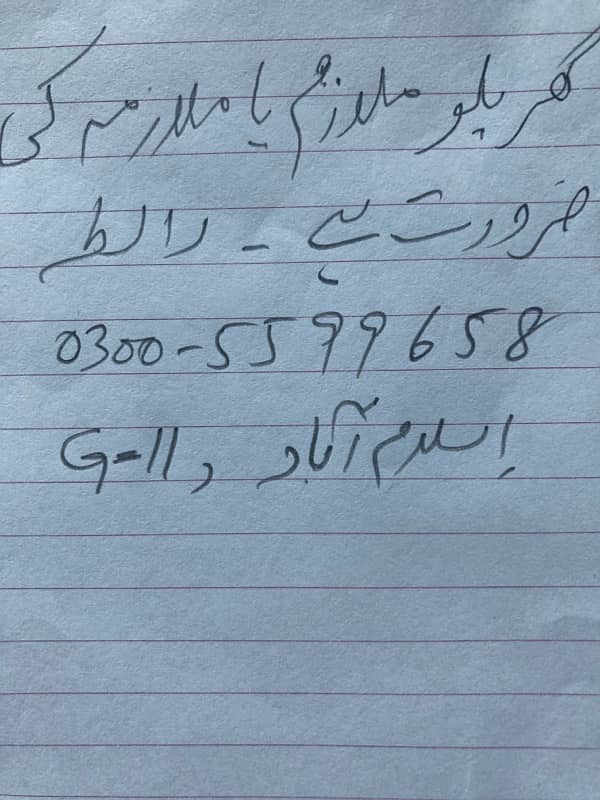 گھریلو ملازم یا ملازمہ کی
ضرورت ہے ۔ رابطہ
0300-5599658
G-11, اسلام آباد